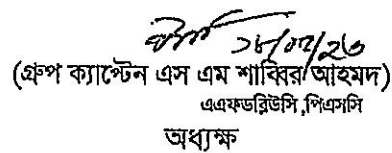 ১৮/০২/২৩
(গ্রুপ ক্যাপ্টেন এস এম শাব্বির আহমদ)
এএফডব্লিউসি,পিএসসি
অধ্যক্ষ